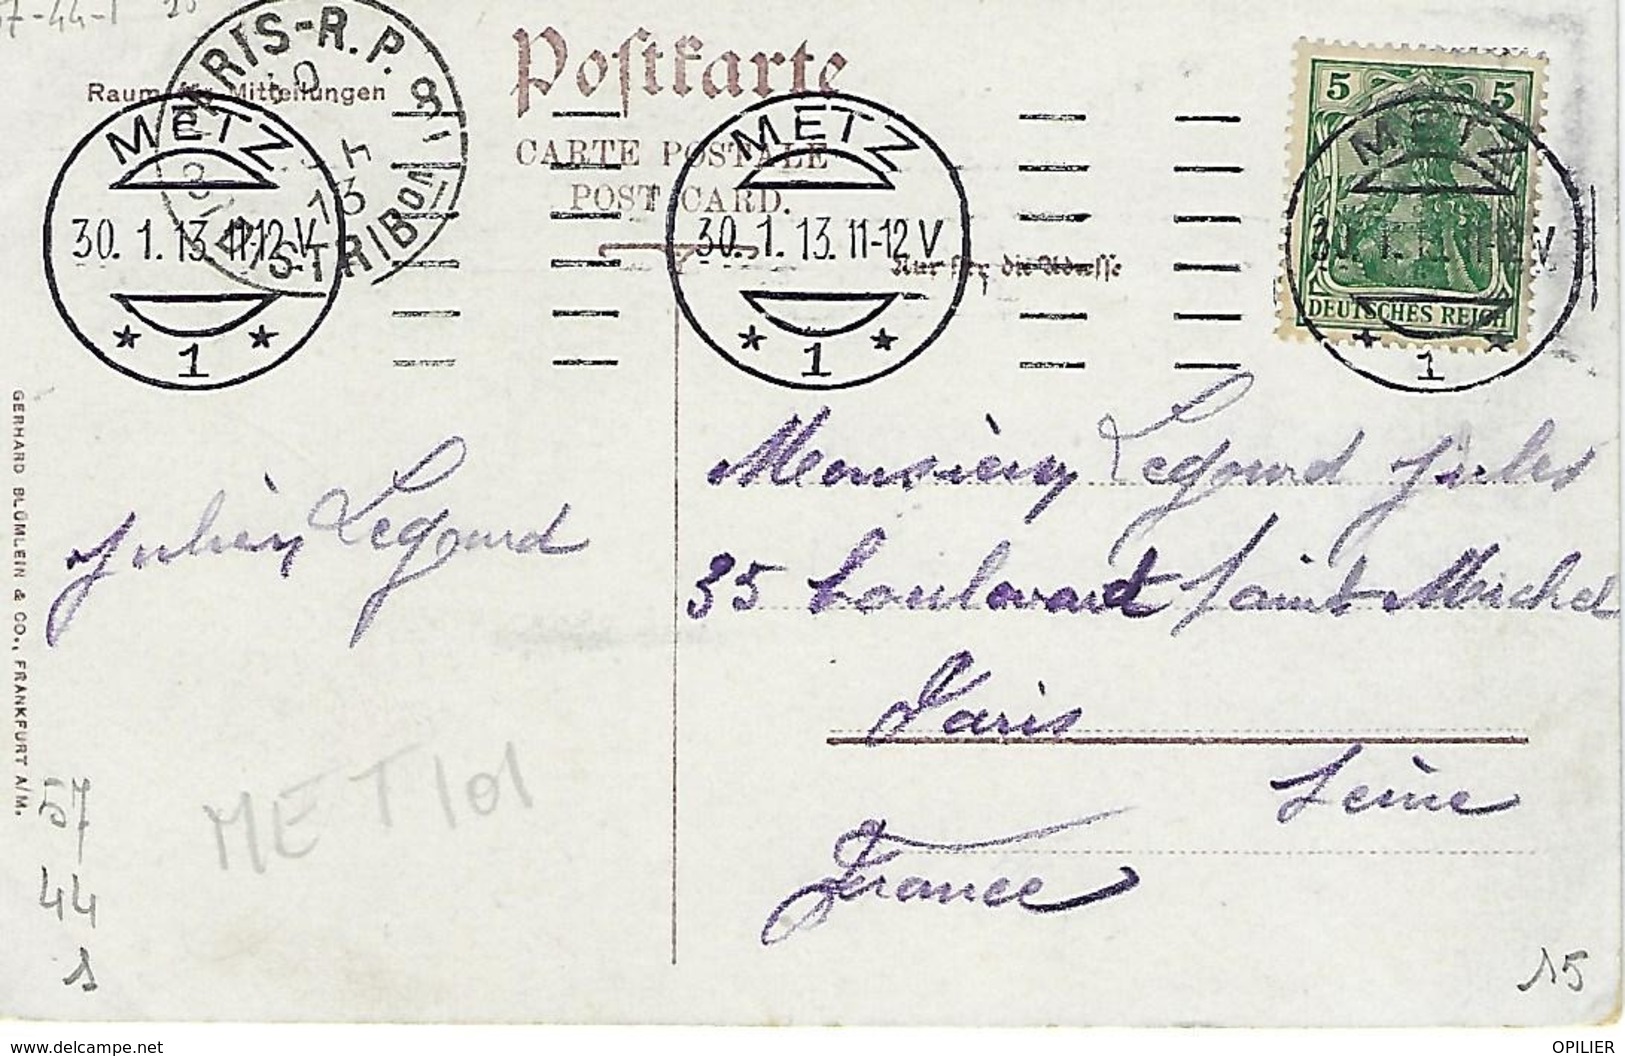 57-44-1
Postkarte
Raum für Mitteilungen
CARTE POSTALE
POST CARD.
Nur für die Adresse
PARIS-R.P. 8
DISTRIBON
13
METZ
30. 1. 13. 11-12 V
* 1 *
METZ
30. 1. 13. 11-12 V
* 1 *
METZ
30. 1. 13. 11-12 V
* 1 *
5 5
DEUTSCHES REICH
Julien Legourd
Monsieur Legourd Jules
35 boulevard Saint Michel
Paris
Seine
France
GERHARD BLÜMLEIN & CO., FRANKFURT A/M.
57
44
1
MET 101
15
www.delcampe.net
OPILIER